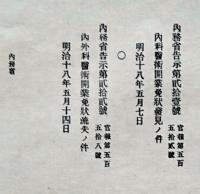 內務省告示第貳拾壹號
官報第五百五拾貳號
內科醫術開業免狀發見ノ件
明治十八年五月七日
○
內務省告示第貳拾貳號
官報第五百五拾八號
內外科醫術開業免狀流失ノ件
明治十八年五月十四日
內務省